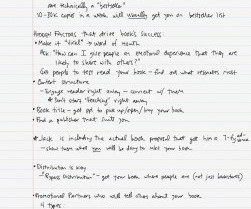 are technically a "bestseller"
10-20K copies in a week will usually get you on bestseller list
Hidden Factors that drive book's success:
• Make it "viral" → word of mouth
Ask "How can I give people an emotional experience that they are
likely to share with others?"
Get people to test read your book - find out what resonates most
• Content structure
- Engage reader right away - connect w/ them
* Don't start "teaching" right away
• Book title - get ppl to pick up/open/buy your book
• Find a publisher that suits you
* Jack is including the actual book proposal that got him a 7-figure
- show them what you will be doing to make your book
• Distribution is key
- "Bypass Distribution" - get your book where people are (not just bookstores)
• Promotional Partners who will tell others about your book
4 types